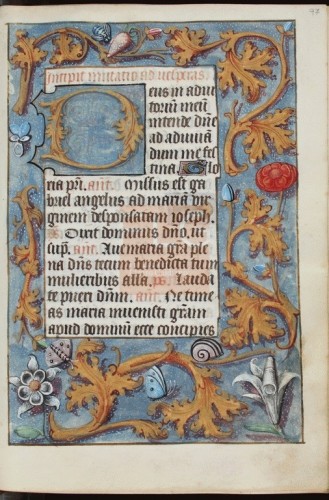 Incipit mutatio ad vesperas.
Deus in adiu
toriũ meũ
intende dñe
ad adiuuã
dum me fes
tina Glo
ria pr̃i. añt. Missus est ga
briel angelus ad mariã vir
ginem desponsatam ioseph.
ps. Dixit dominus dño, ut
sup̃. añt. Aue maria gr̃a ple
na dñs tecum benedicta tu in
mulieribus alla. ps. Lauda
te pueri dñm. añt. Ne time
as maria inuenisti gr̃am
apud dominũ ecce concipies